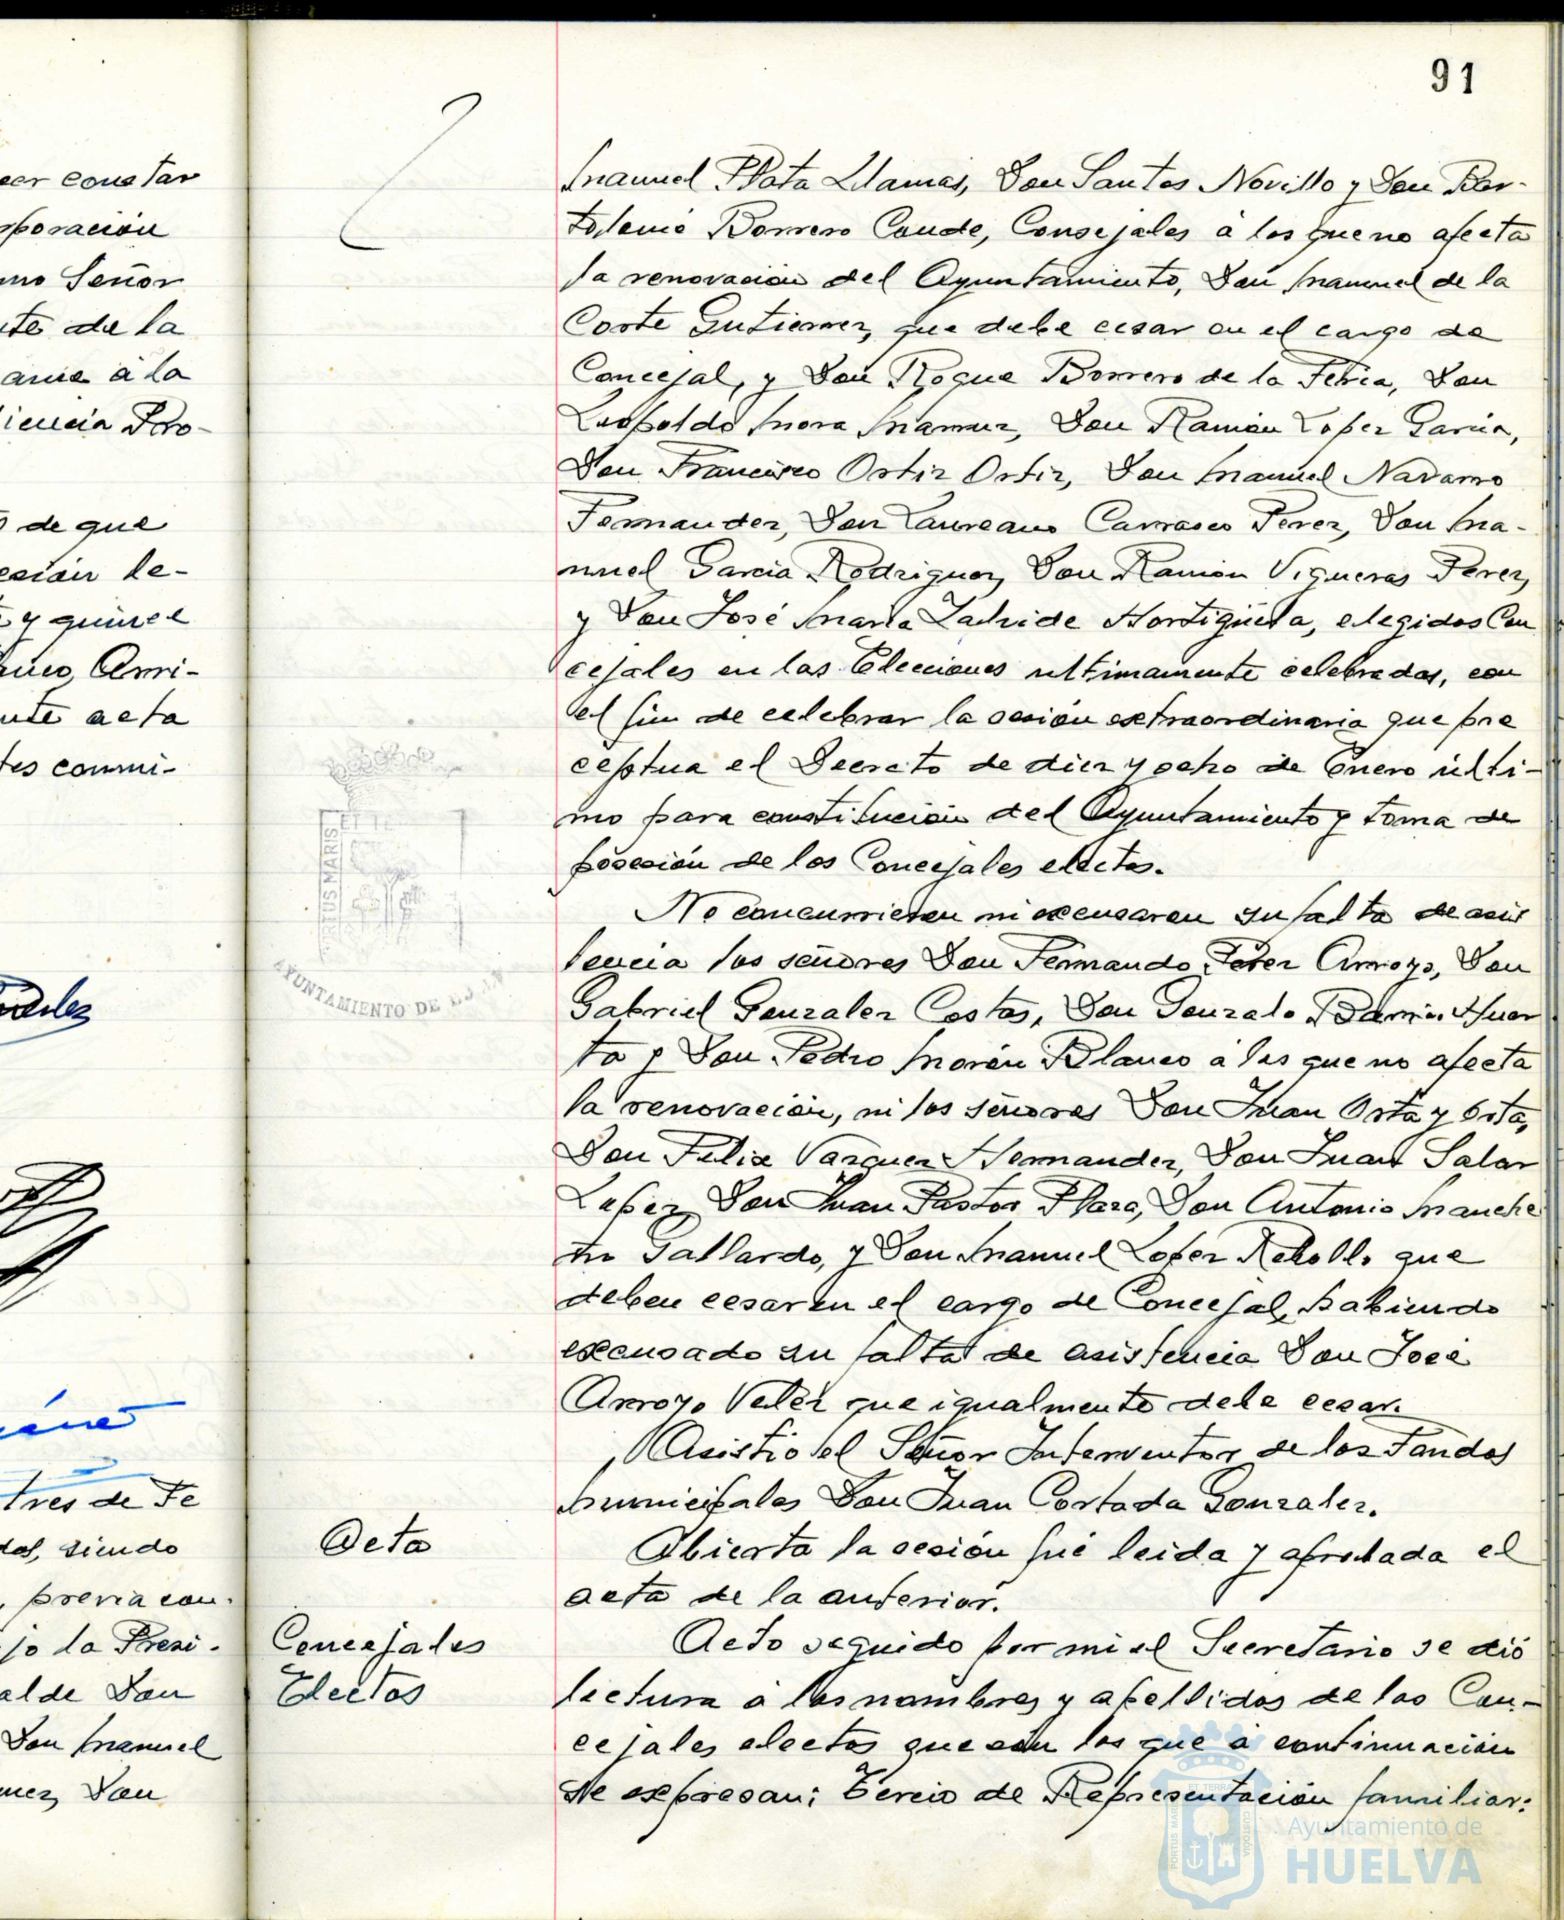 91
eer constar
rporación
mo Señor
te de la
ame á la
iencia Pro-
de que
esión le-
y quince
Arri-
nte acta
tes conmi-
tres de Fe
das, siendo
, previa con-
jo la Presi-
alde Don
Don Manuel
mez, Don
Manuel Plata Llamas, Don Santos Novillo y Don Bar-
tolomé Borrero Conde, Consejales á los que no afecta
la renovación del Ayuntamiento, Don Manuel de la
Corte Gutierrez, que debe cesar en el cargo de
Concejal, y Don Roque Borrero de la Feria, Don
Leopoldo Mora Don Ramón Lopez Garcia,
Don Francisco Ortiz Ortiz, Don Manuel Navarro
Fernandez, Don Laureano Carrasco Perez, Don Ma-
nuel Garcia Rodriguez, Don Ramón Vigueras Perez,
y Don José Maria Hortigüela, elegidos Con
cejales en las Elecciones ultimamente celebradas, con
el fin de celebrar la sesión extraordinaria que pre
ceptua el Decreto de diez y ocho de Enero últi-
mo para constitución del Ayuntamiento y toma de
posesión de los Concejales electos.
No concurrieron ni excusaron su falta de asis
tencia los señores Don Fernando Perez Arroyo, Don
Gabriel Gonzalez Costas, Don Gonzalo Barrios Huer
ta y Don Pedro Morón Blanco á los que no afecta
la renovación, ni los señores Don Juan Orta y Orta,
Don Felix Vazquez Hernandez, Don Juan Salas
Lopez, Don Juan Pastor Plaza, Don Antonio Manche
ño Gallardo, y Don Manuel Lopez Rebollo que
deben cesar en el cargo de Concejal, habiendo
excusado su falta de asistencia Don José
Arroyo Velez que igualmente debe cesar.
Asistio el Señor Interventor de los Fondos
Municipales Don Juan Cortada Gonzalez.
Acta
Abierta la sesión fué leida y aprobada el
acta de la anterior.
Concejales
Electos
Acto seguido por mi el Secretario se dió
lectura á los nombres y apellidos de los Con-
cejales electos que son los que á continuación
se expresan: Tercio de Representación familiar:
AYUNTAMIENTO DE
Ayuntamiento de
HUELVA